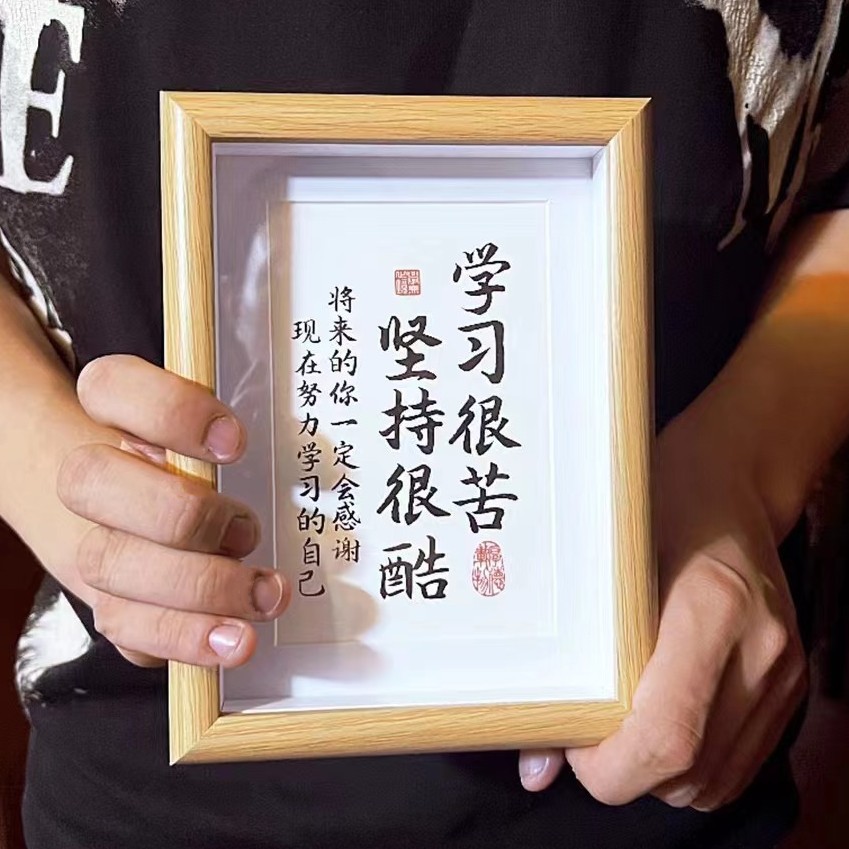 学习很苦
坚持很酷
将来的你一定会感谢
现在努力学习的自己
厚德载物
E